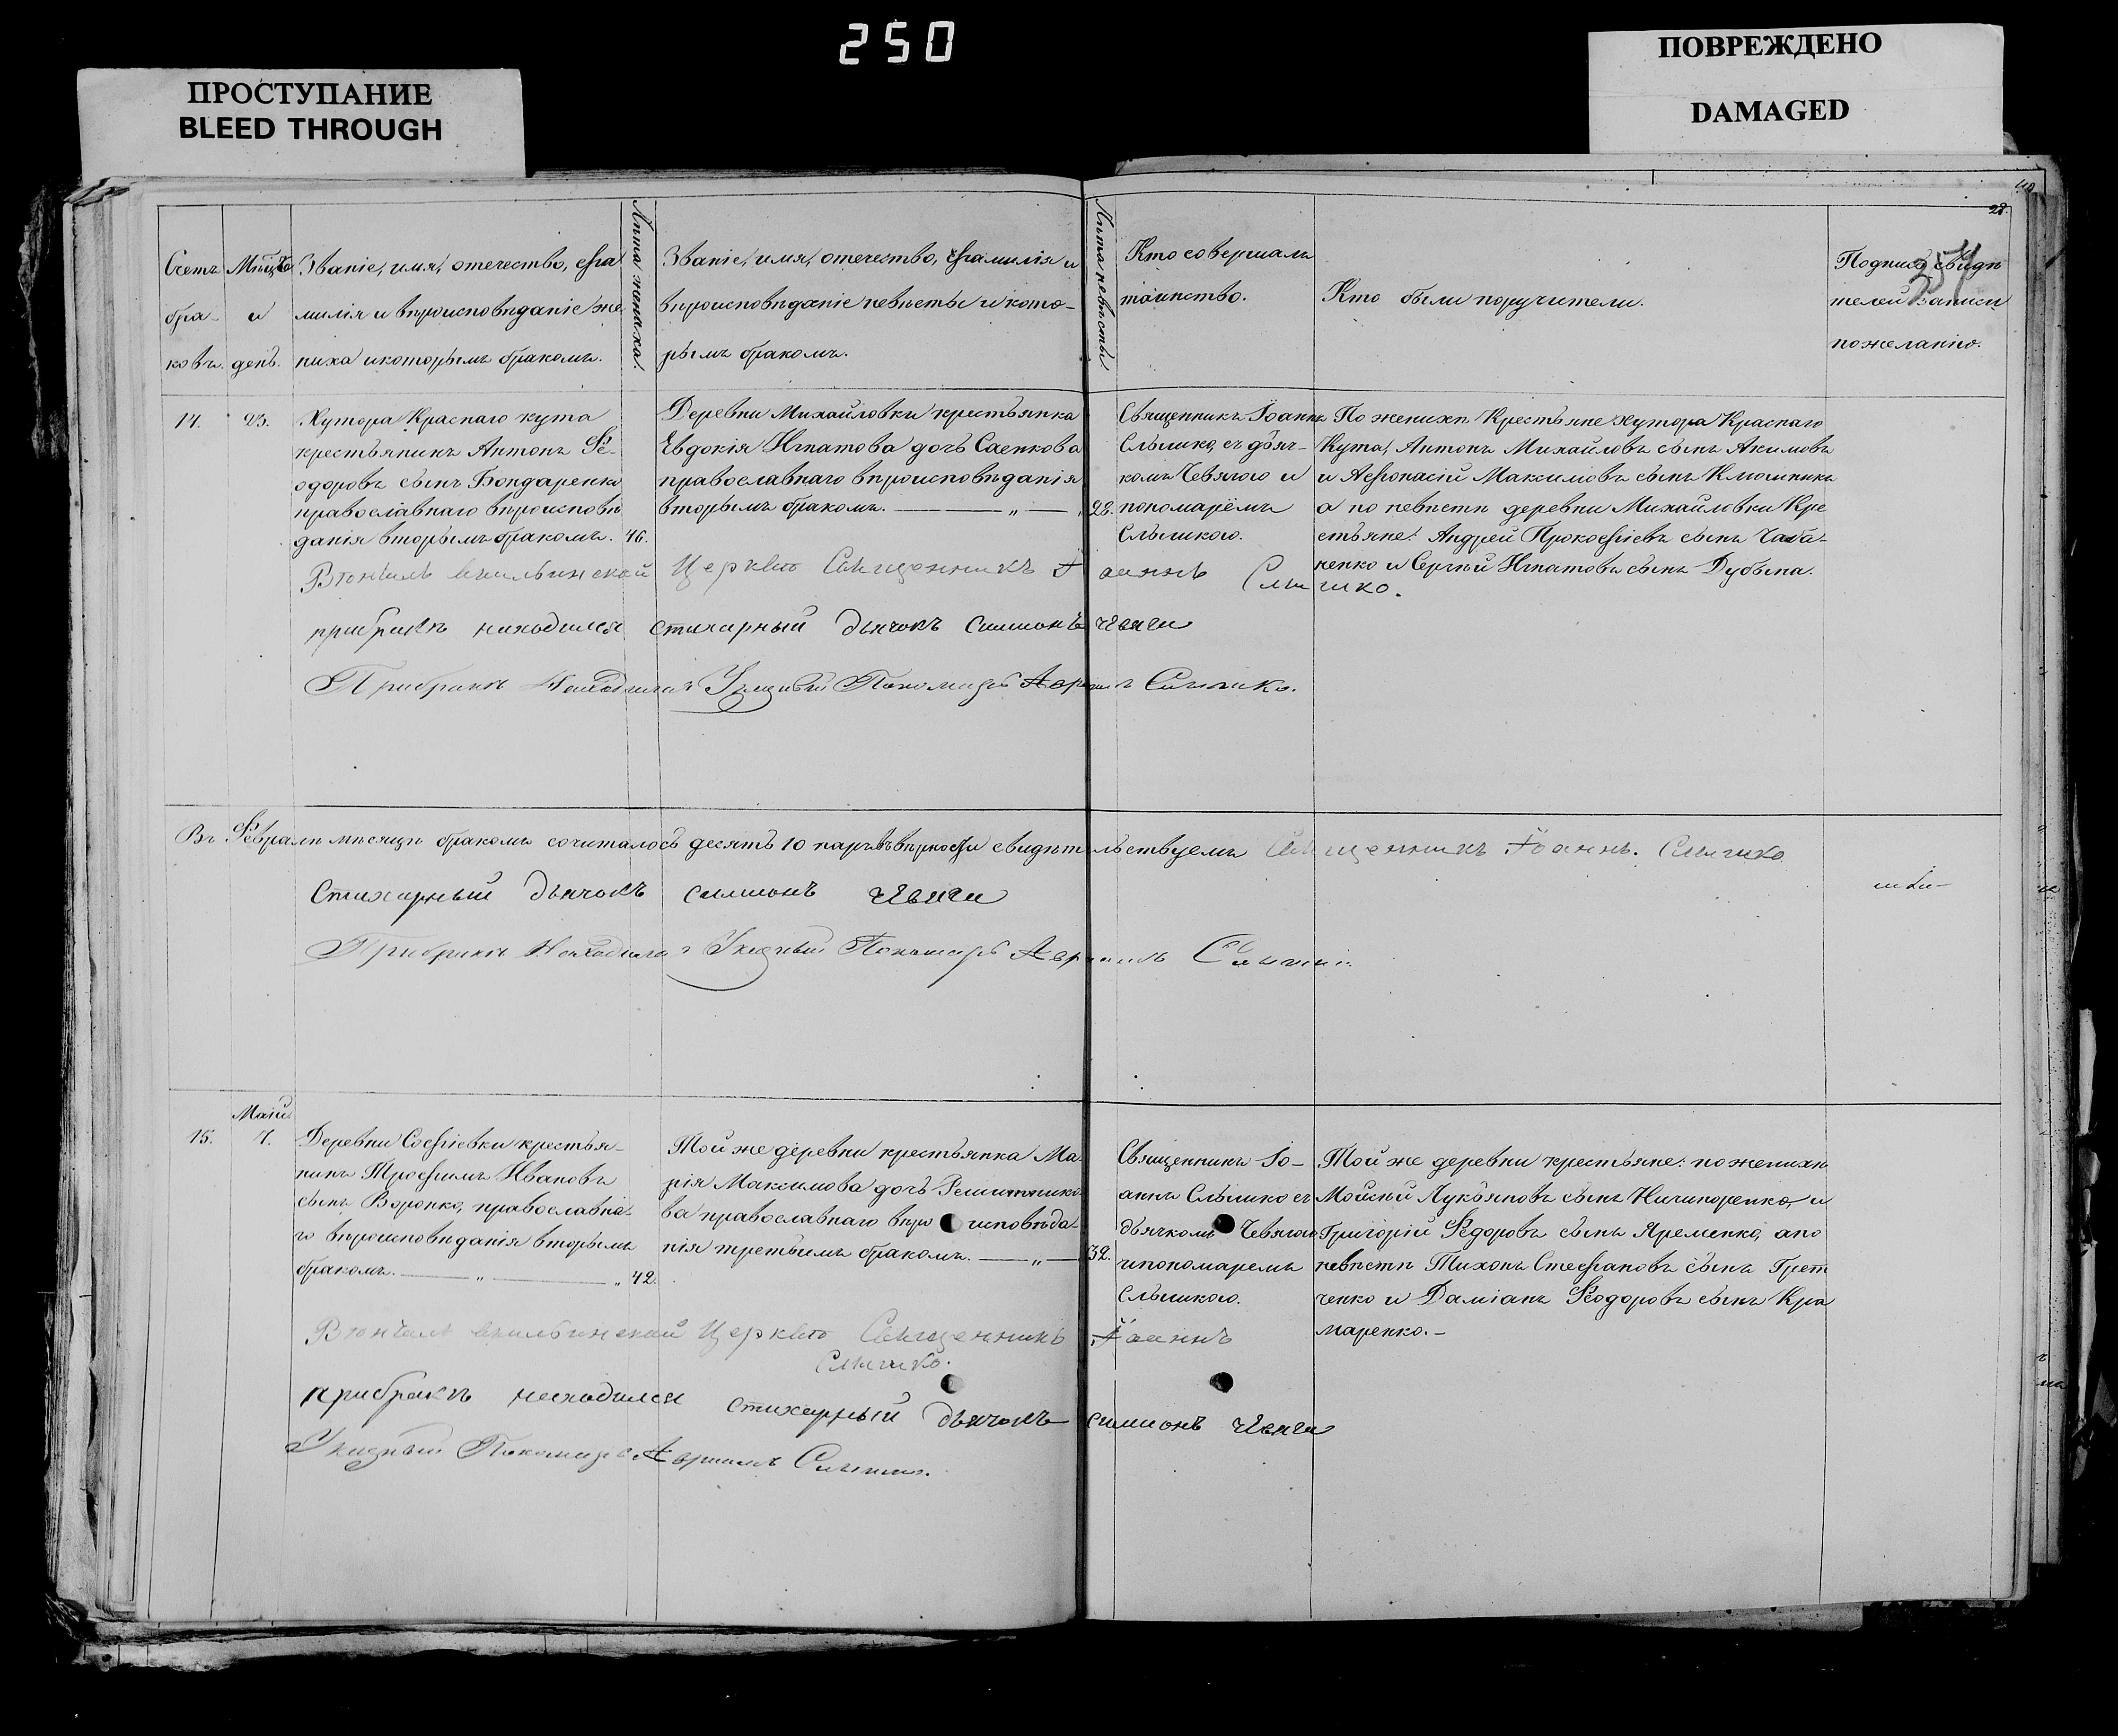 250
ПРОСТУПАНИЕ
BLEED THROUGH
ПОВРЕЖДЕНО
DAMAGED
28.
Счетъ бра- ковъ.
Мѣцъ и день.
Званіе, имя, отечество, фа
милія и вѣроисповѣданіе же
ниха и которымъ бракомъ.
Лѣта жениха.
Званіе, имя, отечество, фамилія и
вѣроисповѣданіе невѣсты и кото-
рымъ бракомъ.
Лѣта невѣсты
Кто совершалъ
таинство.
Кто были поручители.
Подпись свидѣ
телей записи
по желанію.
14.
23.
Хутора Краснаго кута
крестьянинъ Антонъ Ѳе-
одоровъ сынъ Бондаренко
православнаго вѣроисповѣ
данія вторымъ бракомъ.
46.
Деревни Михайловки крестьянка
Евдокія Игнатова дочь Саенкова
православнаго вѣроисповѣданія
вторымъ бракомъ. — „ —
28.
Священникъ Іоаннъ
Слышко, съ дьяч-
комъ Чевягою и
пономарёмъ
Слышкою.
По женихѣ Крестьяне хутора Краснаго
Кута, Антонъ Михайловъ сынъ Акимовъ
и Афонасій Максимовъ сынъ Клюшникъ
а по невѣстѣ деревни Михайловки Кре
стьяне: Андрей Прокофіевъ сынъ Чаба-
ненко и Сергій Игнатовъ сынъ Дубына.
Церкви Священникъ Іоаннъ Слышко.
прибракѣ находился стихарный дьячокъ Симионъ Чевяги
Прибракѣ Находился Указный Пономарь Слышко.
Въ Февралѣ мѣсяцѣ бракомъ сочиталось десять 10 паръ въ вѣрности свидѣтельствуемъ Священникъ Іоаннъ. Слышко
Стихарный дьячокъ симионъ Чевяги
Прибракѣ Находился Указный Пономарь Слышко
15.
Маій
7.
Деревни Софіевки крестья-
нинъ Трофимъ Ивановъ
сынъ Воронко, православна-
го вѣроисповѣданія вторымъ
бракомъ. — „ — „
42.
Той же деревни крестьянка Ма
рія Максимова дочь Решетнико
ва православнаго вѣроисповѣда-
нія третьимъ бракомъ. — „ —
32.
Священникъ Іо-
аннъ Слышко съ
дьячкомъ Чевягою
и пономаремъ
Слышкою.
Той же деревни крестьяне: по женихѣ
Мойсій Лукьяновъ сынъ Ничипоренко, и
Григорій Ѳедоровъ сынъ Яременко, а по
невѣстѣ Тихонъ Стефановъ сынъ Грет
ченко и Даміанъ Ѳеодоровъ сынъ Кра
маренко. —
Церкви Священникъ Іоаннъ
Слышко.
прибракѣ находился стихарный дьячокъ симионъ Чевяги
Указный Пономарь Слышко.